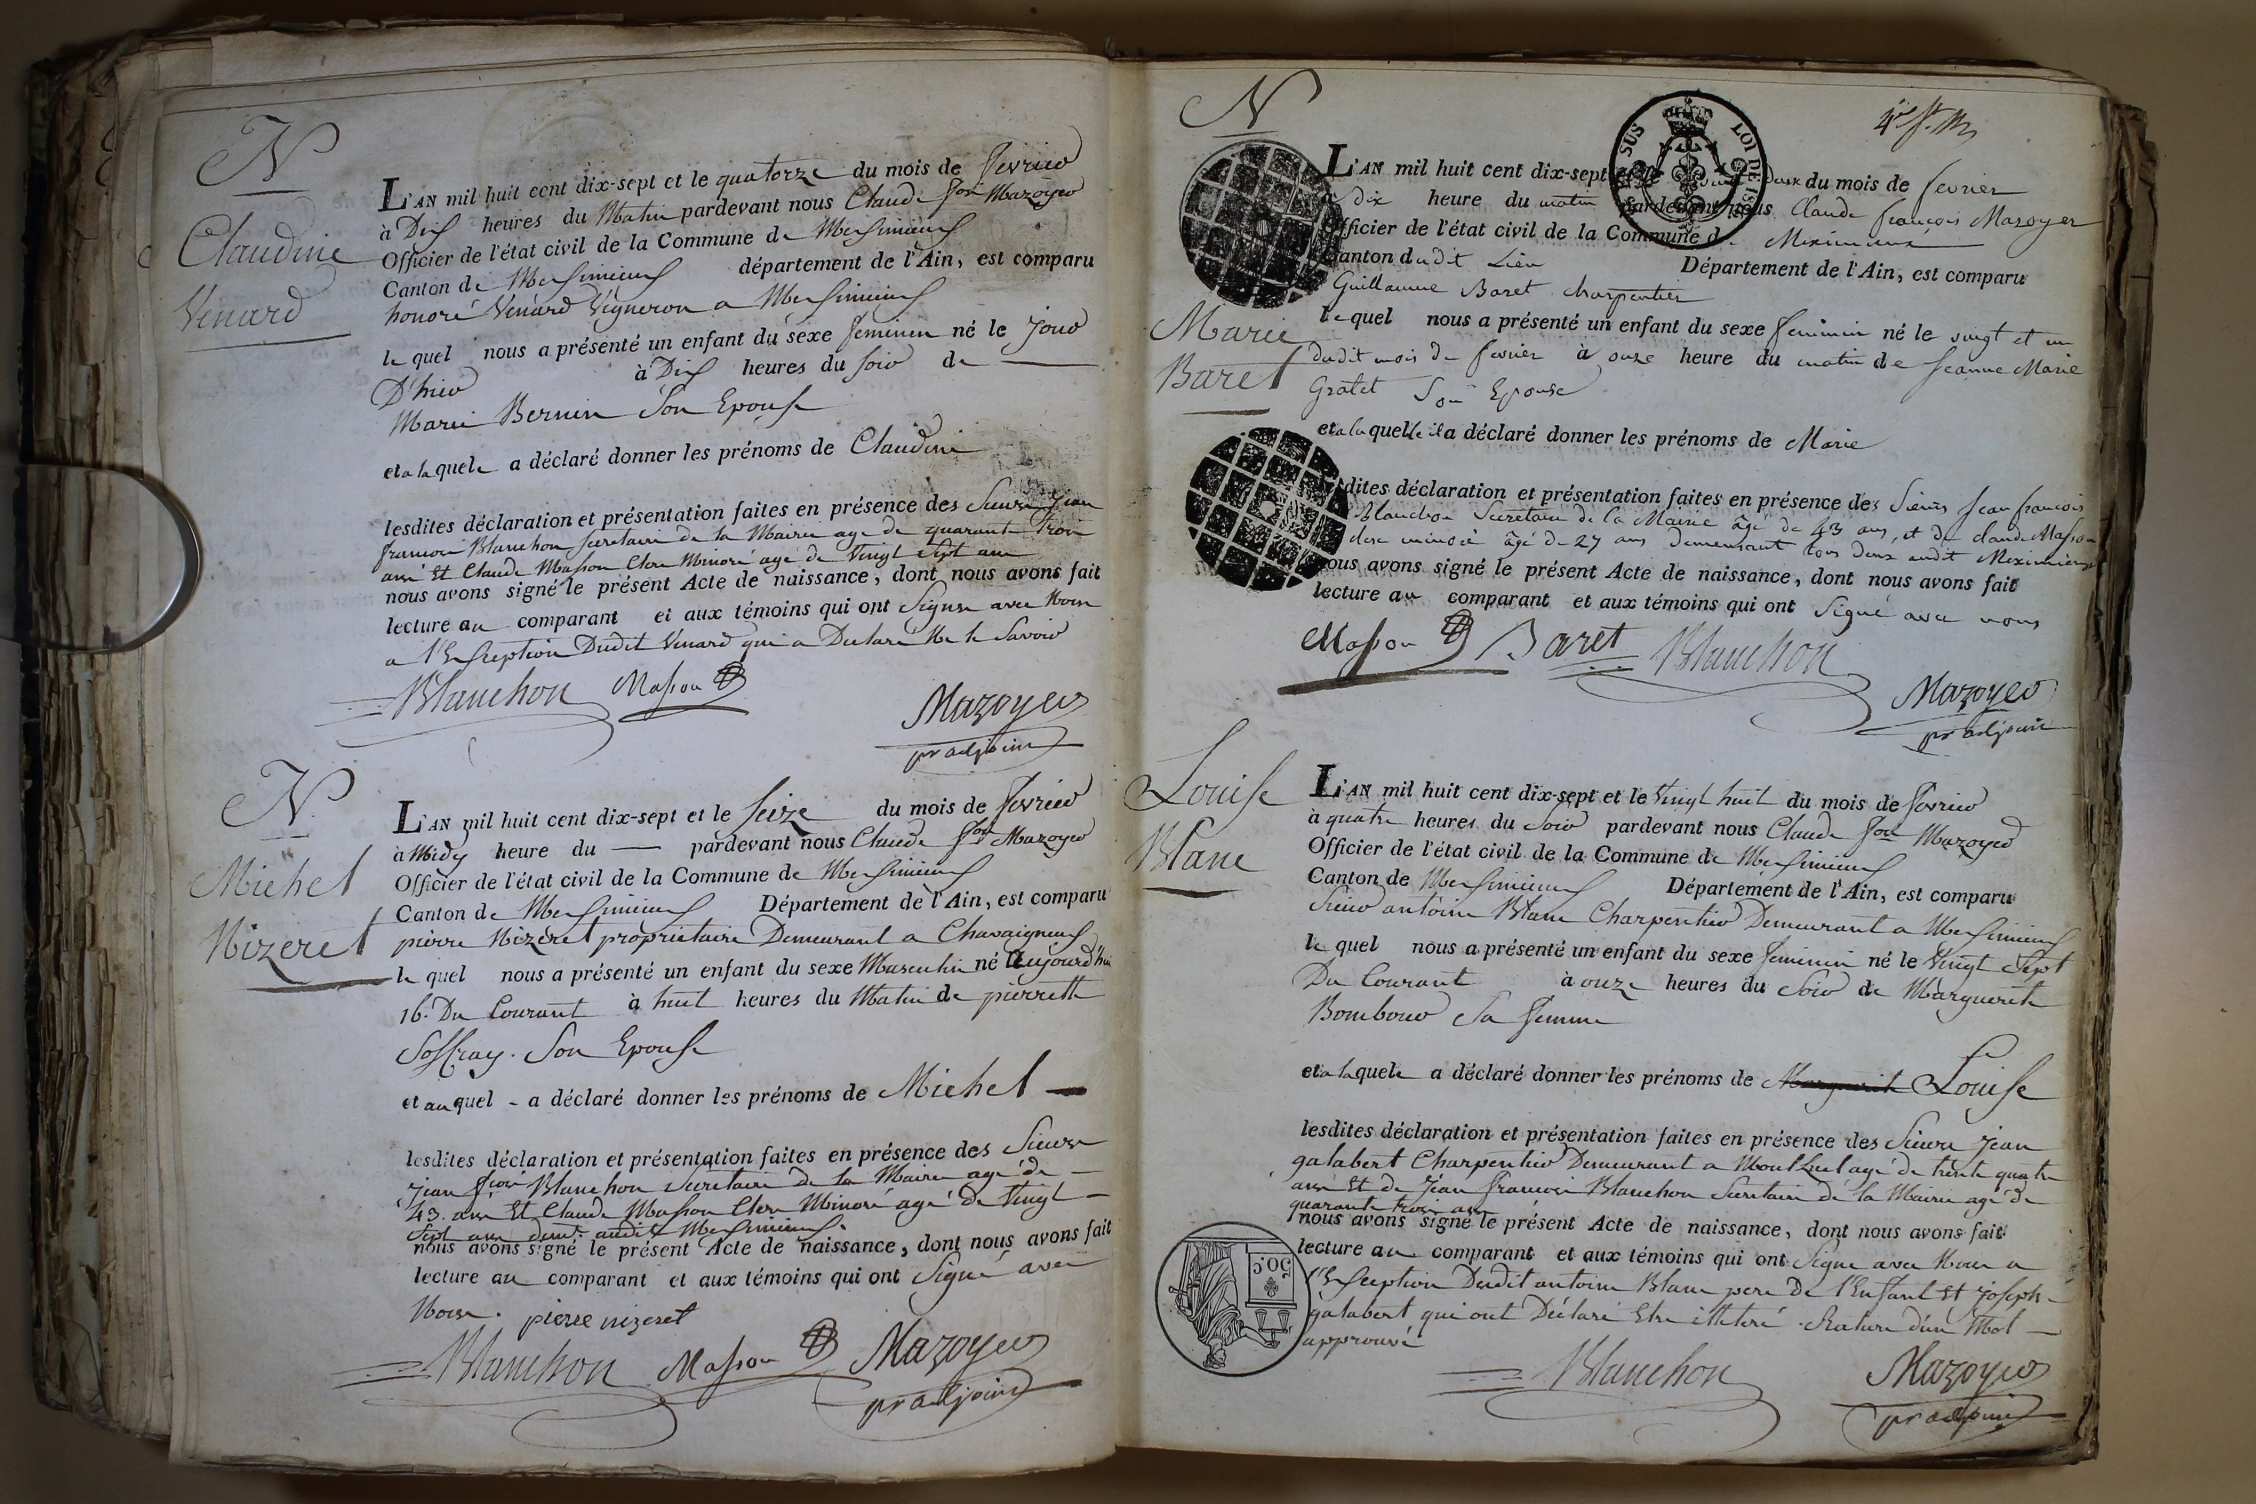 N
Claudine
Venard
L'AN mil huit cent dix-sept et le quatorze du mois de fevrier
à Dix heures du Matin pardevant nous Claude fois Mazoyer
Officier de l'état civil de la Commune de Meximieux
Canton de Meximieux département de l'Ain, est comparu
honoré Venard Vigneron a Meximieux
le quel nous a présenté un enfant du sexe feminin né le Jour
D'hier à Dix heures du soir de
Marie Bernin Son Epouse
et a la quele a déclaré donner les prénoms de Claudine
lesdites déclaration et présentation faites en présence des Sieurs Jean
francois Blanchon secretaire de la Mairie agé de quarante trois
ans Et Claude Masson Clerc Minoré agé de Vingt Sept ans
nous avons signé le présent Acte de naissance, dont nous avons fait
lecture au comparant et aux témoins qui ont Signés avec Nous
a l'Exception Dudit Venard qui a Declaré Ne le Savoir
Blanchon Masson
Mazoyer
pr adjoint
N
Michel
Nizeret
L'AN mil huit cent dix-sept et le seize du mois de fevrier
à Midy heure du — pardevant nous Claude fois Mazoyer
Officier de l'état civil de la Commune de Meximieux
Canton de Meximieux Département de l'Ain, est comparu
pierre Nizeret proprietaire Demeurant a Chavagneux
le quel nous a présenté un enfant du sexe Masculin né aujourd'hui
16. Du Courant à huit heures du Matin de pierrette
Soffray. Son Epouse
et au quel - a déclaré donner les prénoms de Michel —
lesdites déclaration et présentation faites en présence des Sieurs
Jean fcois Blanchon secretaire de la Mairie agé de
43. ans Et Claude Masson Clerc Minoré agé de Vingt
Sept ans demt. audit Meximieux.
nous avons signé le présent Acte de naissance, dont nous avons fait
lecture au comparant et aux témoins qui ont signé avec
Nous. pierre nizeret
Blanchon Masson Mazoyer
pr adjoint
N
SUS LOI DE
Marie
Baret
L'AN mil huit cent dix-sept deux du mois de fevrier
à dix heure du matin pardevant nous Claude françois Mazoyer
Officier de l'état civil de la Commune de Meximieux
Canton dudit Lieu Département de l'Ain, est comparu
Guillaume Baret charpentier
le quel nous a présenté un enfant du sexe feminin né le vingt et un
dudit mois de fevrier à onze heure du matin de Jeanne Marie
Gratet Son Epouse
et a la quelle il a déclaré donner les prénoms de Marie
dites déclaration et présentation faites en présence des Sieurs Jean francois
Blanchon Secretaire de la Mairie âgé de 43 ans, et de claude Masson
clerc minoré âgé de 27 ans demeurant tous deux audit Meximieux
nous avons signé le présent Acte de naissance, dont nous avons fait
lecture au comparant et aux témoins qui ont signé avec nous
Masson Baret Blanchon
Mazoyer
pr adjoint
Louise
Blanc
L'AN mil huit cent dix-sept et le Vingt huit du mois de fevrier
à quatre heures du Soir pardevant nous Claude fois Mazoyer
Officier de l'état civil de la Commune de Meximieux
Canton de Meximieux Département de l'Ain, est comparu
Sieur antoine Blanc Charpentier Demeurant a Meximieux
le quel nous a présenté un enfant du sexe feminin né le Vingt Sept
Du Courant à onze heures du Soir de Marguerite
Bombour Sa femme
et a la quele a déclaré donner les prénoms de Marguerite Louise
lesdites déclaration et présentation faites en présence des Sieurs Jean
galabert Charpentier Demeurant a Mont Luel agé de trente quatre
ans Et de Jean francois Blanchon Secretaire de la Mairie agé de
quarante trois ans
nous avons signé le présent Acte de naissance, dont nous avons fait
lecture au comparant et aux témoins qui ont Signé avec Nous a
l'Exception Dudit antoine Blanc pere de l'Enfant Et joseph
galabert qui ont Déclaré Etre illeteré. Rature d'un Mot
approuvé
50.C
Blanchon Mazoyer
pr adjoint